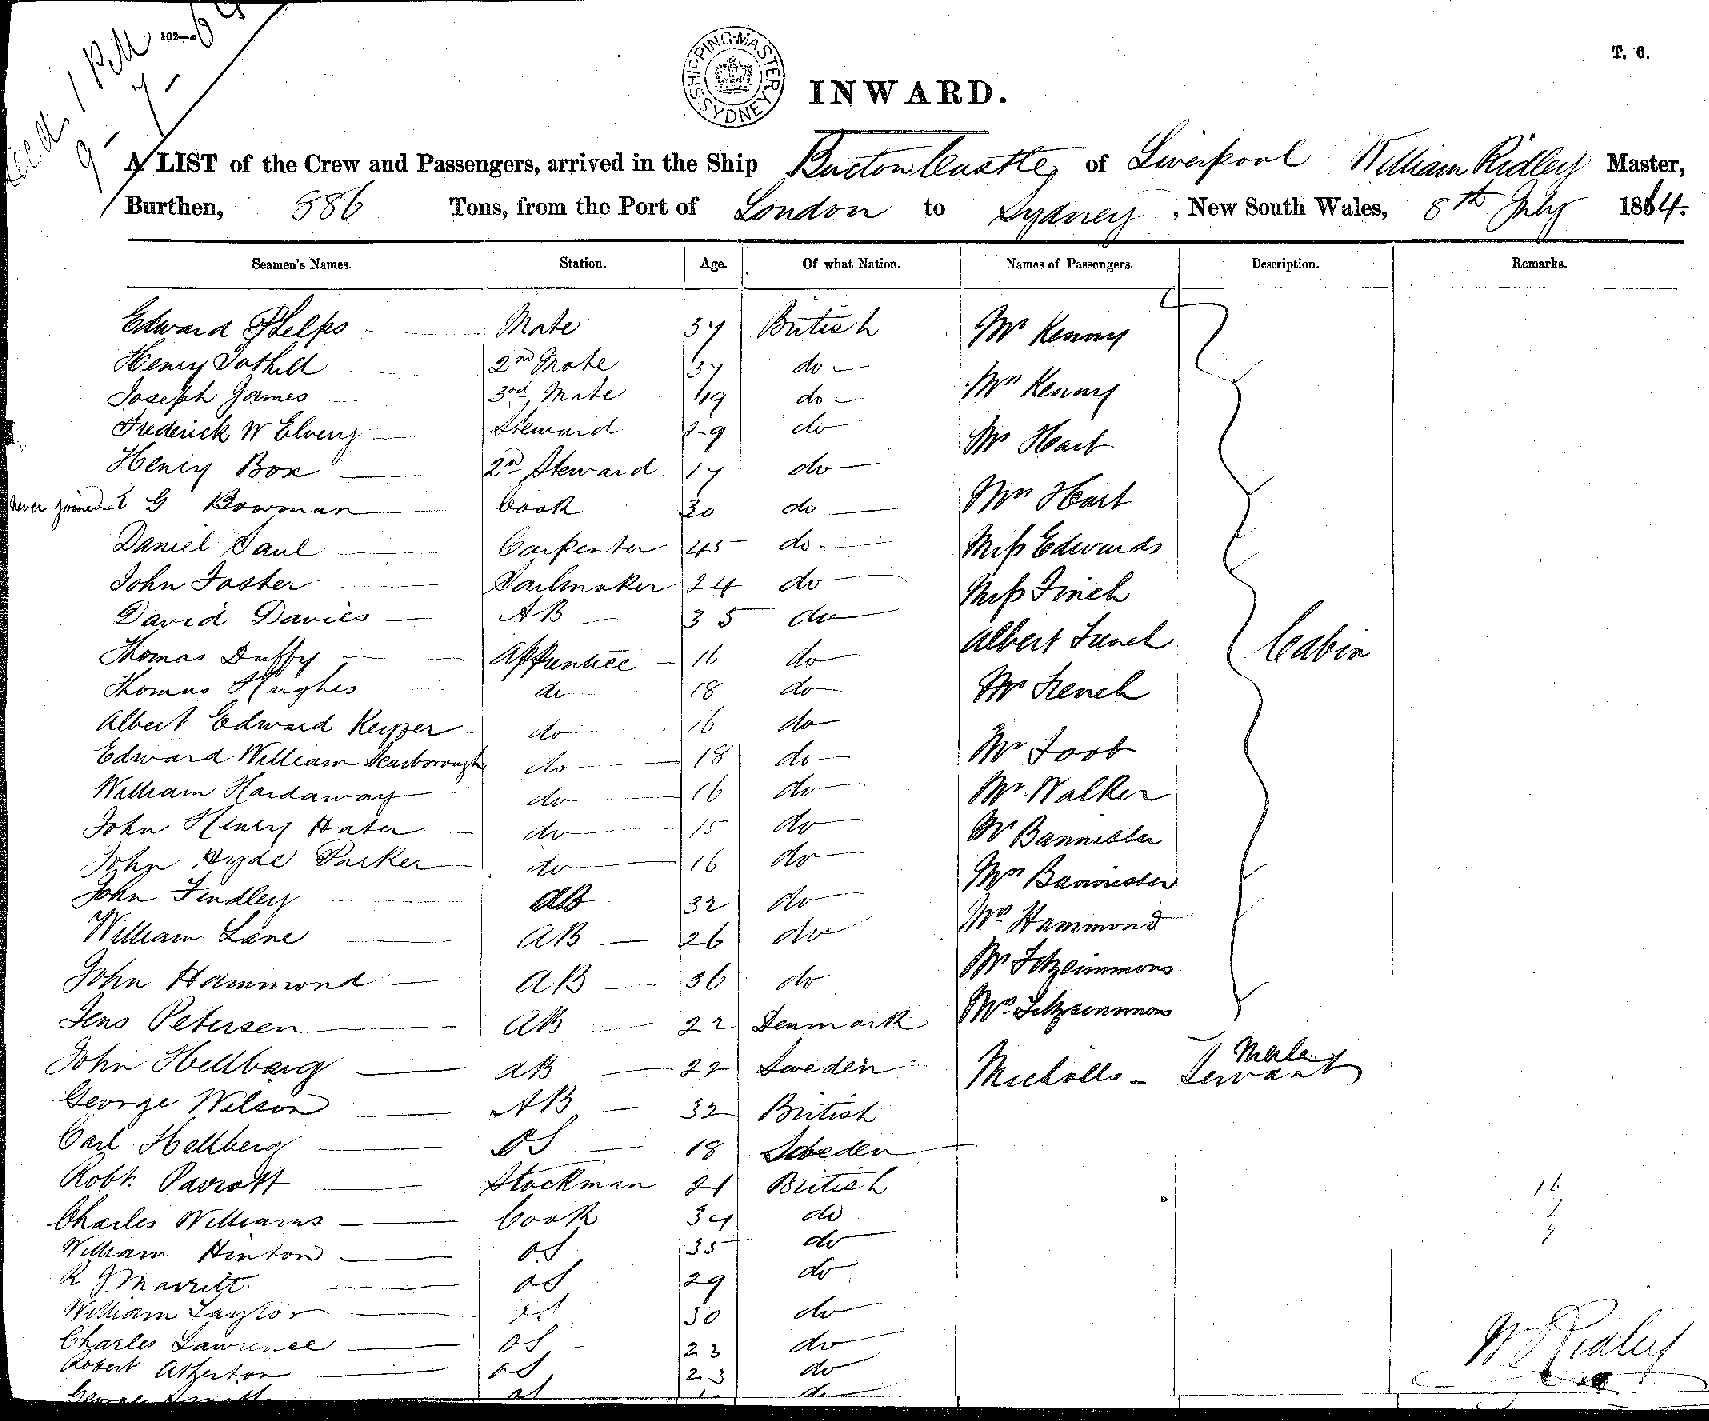 102—64
T. 6.
Recd. 1 PM
9-7-
SHIPPING MASTER SYDNEY
INWARD.
A LIST of the Crew and Passengers, arrived in the Ship Burton Castle, of Liverpool William Ridley Master,
Burthen, 886 Tons, from the Port of London to Sydney, New South Wales, 8th July 1864.
Seamen's Names. Station. Age. Of what Nation. Names of Passengers. Description. Remarks.
Edward Phelps Mate 37 British Mr Kenny
Henry Tothill 2nd Mate 37 do
Joseph James 3rd Mate 19 do Mrs Kenny
Frederick W Elvery Steward 29 do Mr Hart
Henry Box 2nd Steward 17 do
never joined G Bowman Cook 30 do Mrs Hart
Daniel Saul Carpenter 45 do Miss Edwards
John Foster Sailmaker 24 do Miss Finch
David Davies AB 35 do
Albert Finch Cabin
Thomas Duffy Apprentice 16 do
Thomas Hughes do 18 do Mr French
Albert Edward Keyzer do 16 do
Edward William Scarborough do 18 do Mr Foot
William Hardaway do 16 do Mr Walker
John Henry Hater do 15 do Mr Bannister
John Hyde Parker do 16 do
John Findley AB 32 do Mrs Bannister
William Lane AB 26 do Mrs Hammond
John Hammond AB 36 do Mr Fitzsimmons
Jens Petersen AB 22 Denmark Mrs Fitzsimmons
John Hellberg AB 22 Sweden Nicholls - Male Servant
George Wilson AB 32 British
Carl Hellberg OS 18 Sweden
Robt. Parrott Stockman 21 British 16
Charles Williams Cook 34 do
William Hinton OS 35 do
R J Marritt OS 29 do
William Taylor OS 30 do
Charles Lawrence OS 23 do
Robert Atherton OS 23 do
W Ridley
George OS do